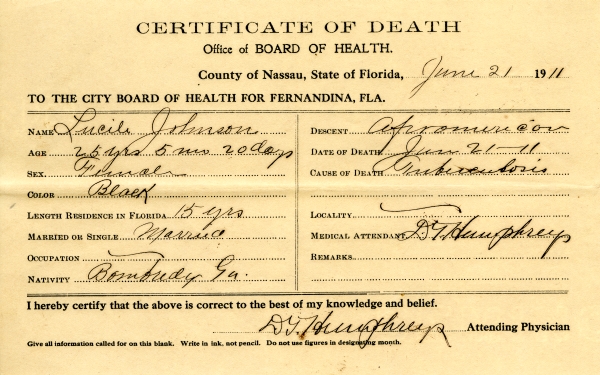 CERTIFICATE OF DEATH
Office of BOARD OF HEALTH.
County of Nassau, State of Florida, June 21 1911
TO THE CITY BOARD OF HEALTH FOR FERNANDINA, FLA.
NAME Lucile Johnson
AGE 25 yrs 5 mo 20 days
SEX Female
COLOR Black
LENGTH RESIDENCE IN FLORIDA 15 yrs
MARRIED OR SINGLE Married
OCCUPATION
NATIVITY Ga.
DESCENT Afromerican
DATE OF DEATH Jun 21-11
CAUSE OF DEATH Tuberculosis
LOCALITY
MEDICAL ATTENDANT D. T. Humphreys
REMARKS
I hereby certify that the above is correct to the best of my knowledge and belief.
D. T. Humphreys Attending Physician
Give all information called for on this blank. Write in ink, not pencil. Do not use figures in designating month.